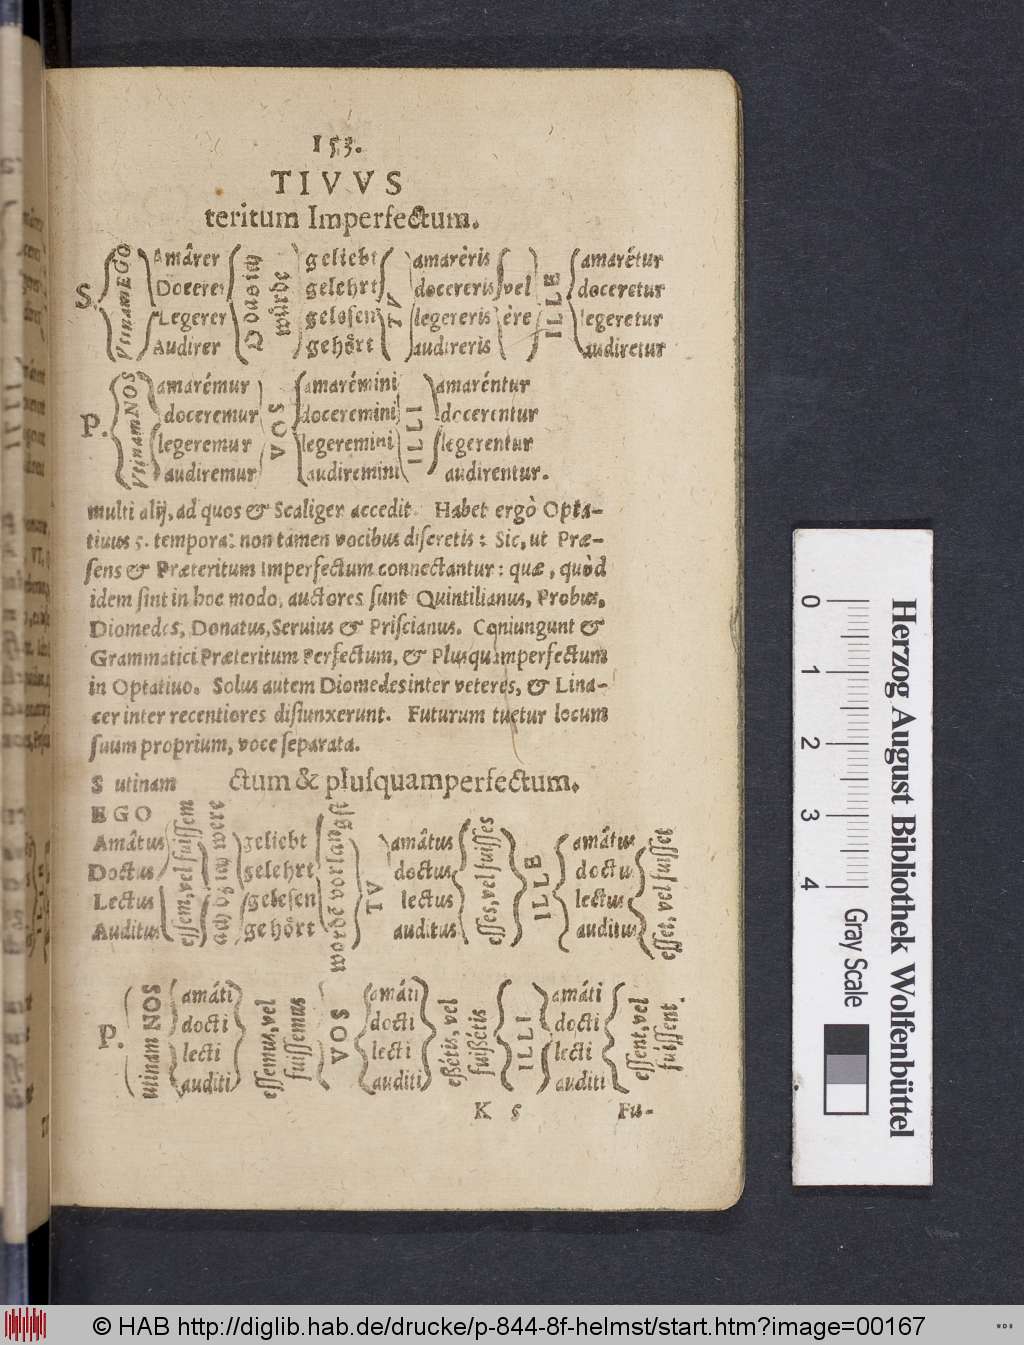 153.
TIVVS
teritum Imperfectum.
S. Vtinam EGO
Amârer
Docerer
Legerer
Audirer
O das ich
würde
geliebt
gelehrt
gelesen
gehört
TV
amarêris
docereris
legereris
audireris
vel
ére
ILLE
amarétur
doceretur
legeretur
audiretur
P. Vtinam NOS
amarémur
doceremur
legeremur
audiremur
VOS
amarémini
doceremini
legeremini
audiremini
ILLI
amaréntur
docerentur
legerentur
audirentur.
multi alij, ad quos & Scaliger accedit. Habet ergò Opta-
tiuus 5. tempora: non tamen vocibus discretis: Sic, ut Præ-
sens & Præteritum Imperfectum connectantur: quæ, quòd
idem sint in hoc modo, auctores sunt Quintilianus, Probus,
Diomedes, Donatus, Seruius & Priscianus. Coniungunt &
Grammatici Præteritum Perfectum, & Plusquamperfectum
in Optatiuo. Solus autem Diomedes inter veteres, & Lina-
cer inter recentiores disiunxerunt. Futurum tuetur locum
suum proprium, voce separata.
S utinam ctum & plusquamperfectum.
EGO
Amâtus
Doctus
Lectus
Auditus
essem, vel fuissem
were
geliebt
gelehrt
gelesen
gehört
TV
amâtus
doctus
lectus
auditus
esses, vel fuisses
ILLE
amâtus
doctus
lectus
auditus
esset, vel fuisset
P. utinam NOS
amáti
docti
lecti
auditi
essemus, vel
fuissemus
VOS
amáti
docti
lecti
auditi
eßétis, vel
fuißétis
ILLI
amáti
docti
lecti
auditi
essent, vel
fuissent.
K 5 Fu-
0 1 2 3 4
Gray Scale
Herzog August Bibliothek Wolfenbüttel
© HAB http://diglib.hab.de/drucke/p-844-8f-helmst/start.htm?image=00167